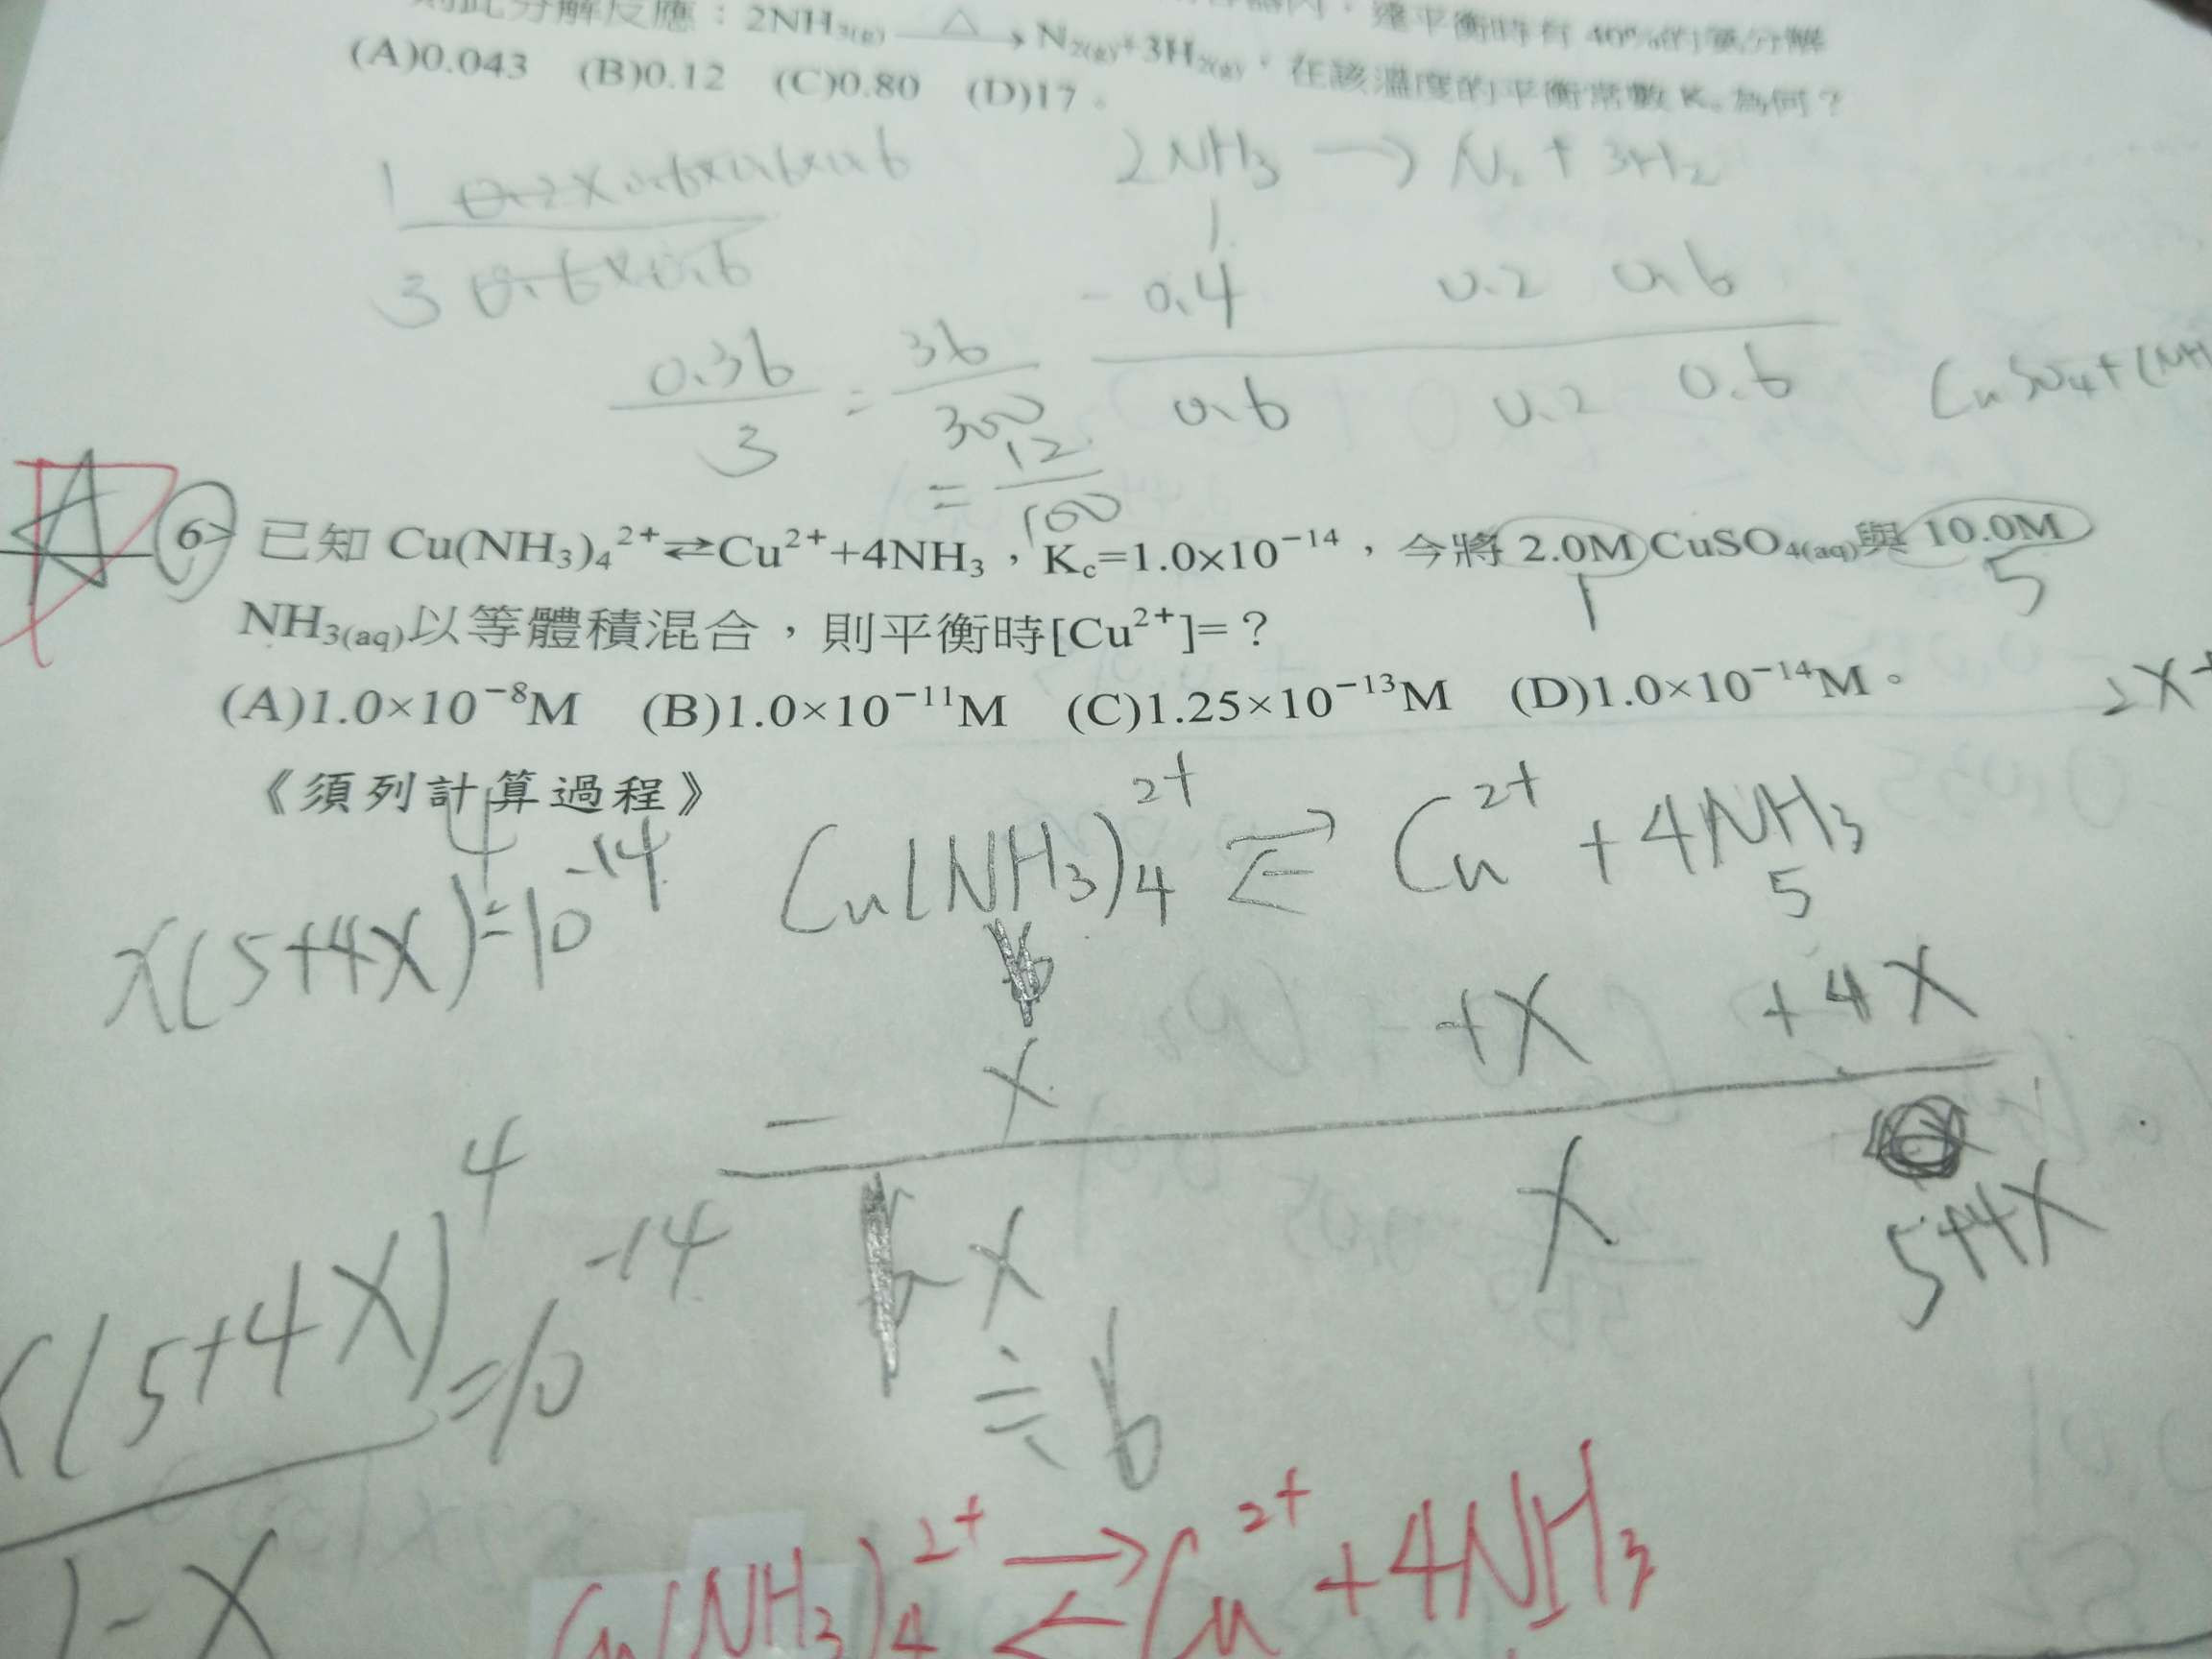 分解反應：2NH₃(g) —△→ N₂(g)+3H₂(g)，在該溫度的平衡常數 Kc 為何？
達平衡時有 40%的氨分解
(A)0.043 (B)0.12 (C)0.80 (D)17。
1 0.2×0.6×0.6×0.6
3 0.6×0.6
2NH3 → N2 + 3H2
1
- 0.4 0.2 0.6
0.6 0.2 0.6
0.36/3 = 36/300
= 12/100
CuSO4+(NH
6 已知 Cu(NH₃)₄²⁺⇄Cu²⁺+4NH₃，Kc=1.0×10⁻¹⁴，今將 2.0M CuSO₄(aq)與 10.0M
1 5
NH₃(aq)以等體積混合，則平衡時[Cu²⁺]=？
(A)1.0×10⁻⁸M (B)1.0×10⁻¹¹M (C)1.25×10⁻¹³M (D)1.0×10⁻¹⁴M。
《須列計算過程》
Cu(NH3)4²⁺ ⇄ Cu²⁺ + 4NH3
5
x(5+4x)⁴=10⁻¹⁴
- x +x +4x
x x 5+4x
≒
(5+4x)⁴=10⁻¹⁴
1-x
Cu(NH3)4²⁺ ⇄ Cu²⁺ + 4NH3